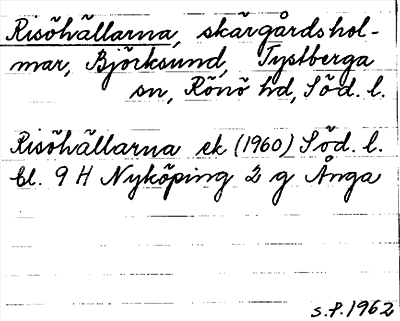 Risöhällarna, skärgårdshol-
mar, Björksund, Tystberga
sn, Rönö hd, Söd. l.
Risöhällarna ek (1960) Söd. l.
bl. 9 H Nyköping 2 g Ånga
S.P. 1962